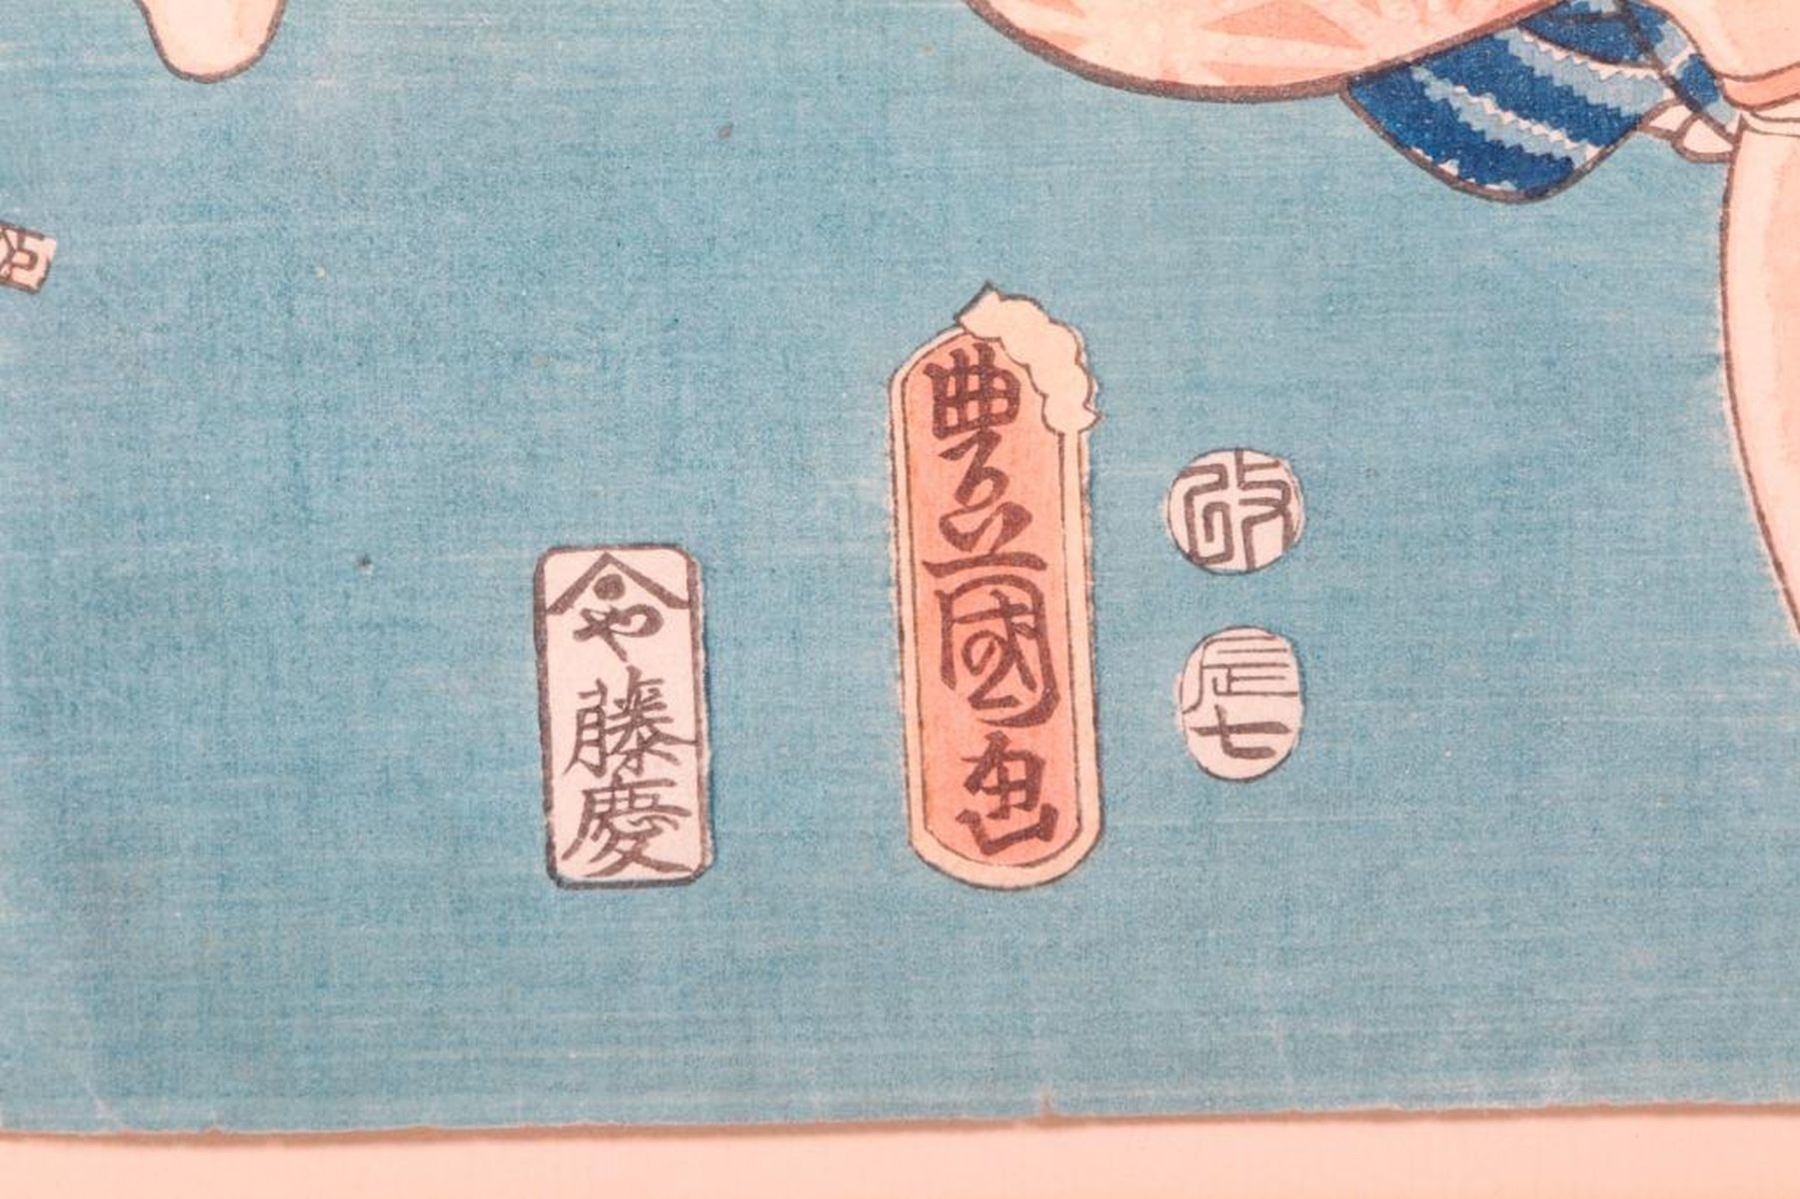 改
辰七
豊国画
や
藤慶